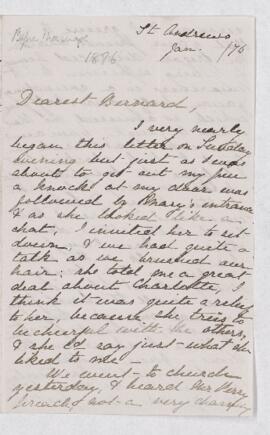 St Andrews
Jan. /76
Before Marriage
1876
Dearest Bernard,
I very nearly
began this letter on Sunday
evening but just as I was
about to get out my pen
a knock at my door was
followed by Mary's entrance
& as she looked like a
chat, I invited her to sit
down, & we had quite a
talk as we brushed our
hair; she told me a great
deal about Charlotte, I
think it was quite a relief
to her, because she tries to
be cheerful with the others,
& she cd say just what she
liked to me —
We went to church
yesterday, & heard Mr
not a very